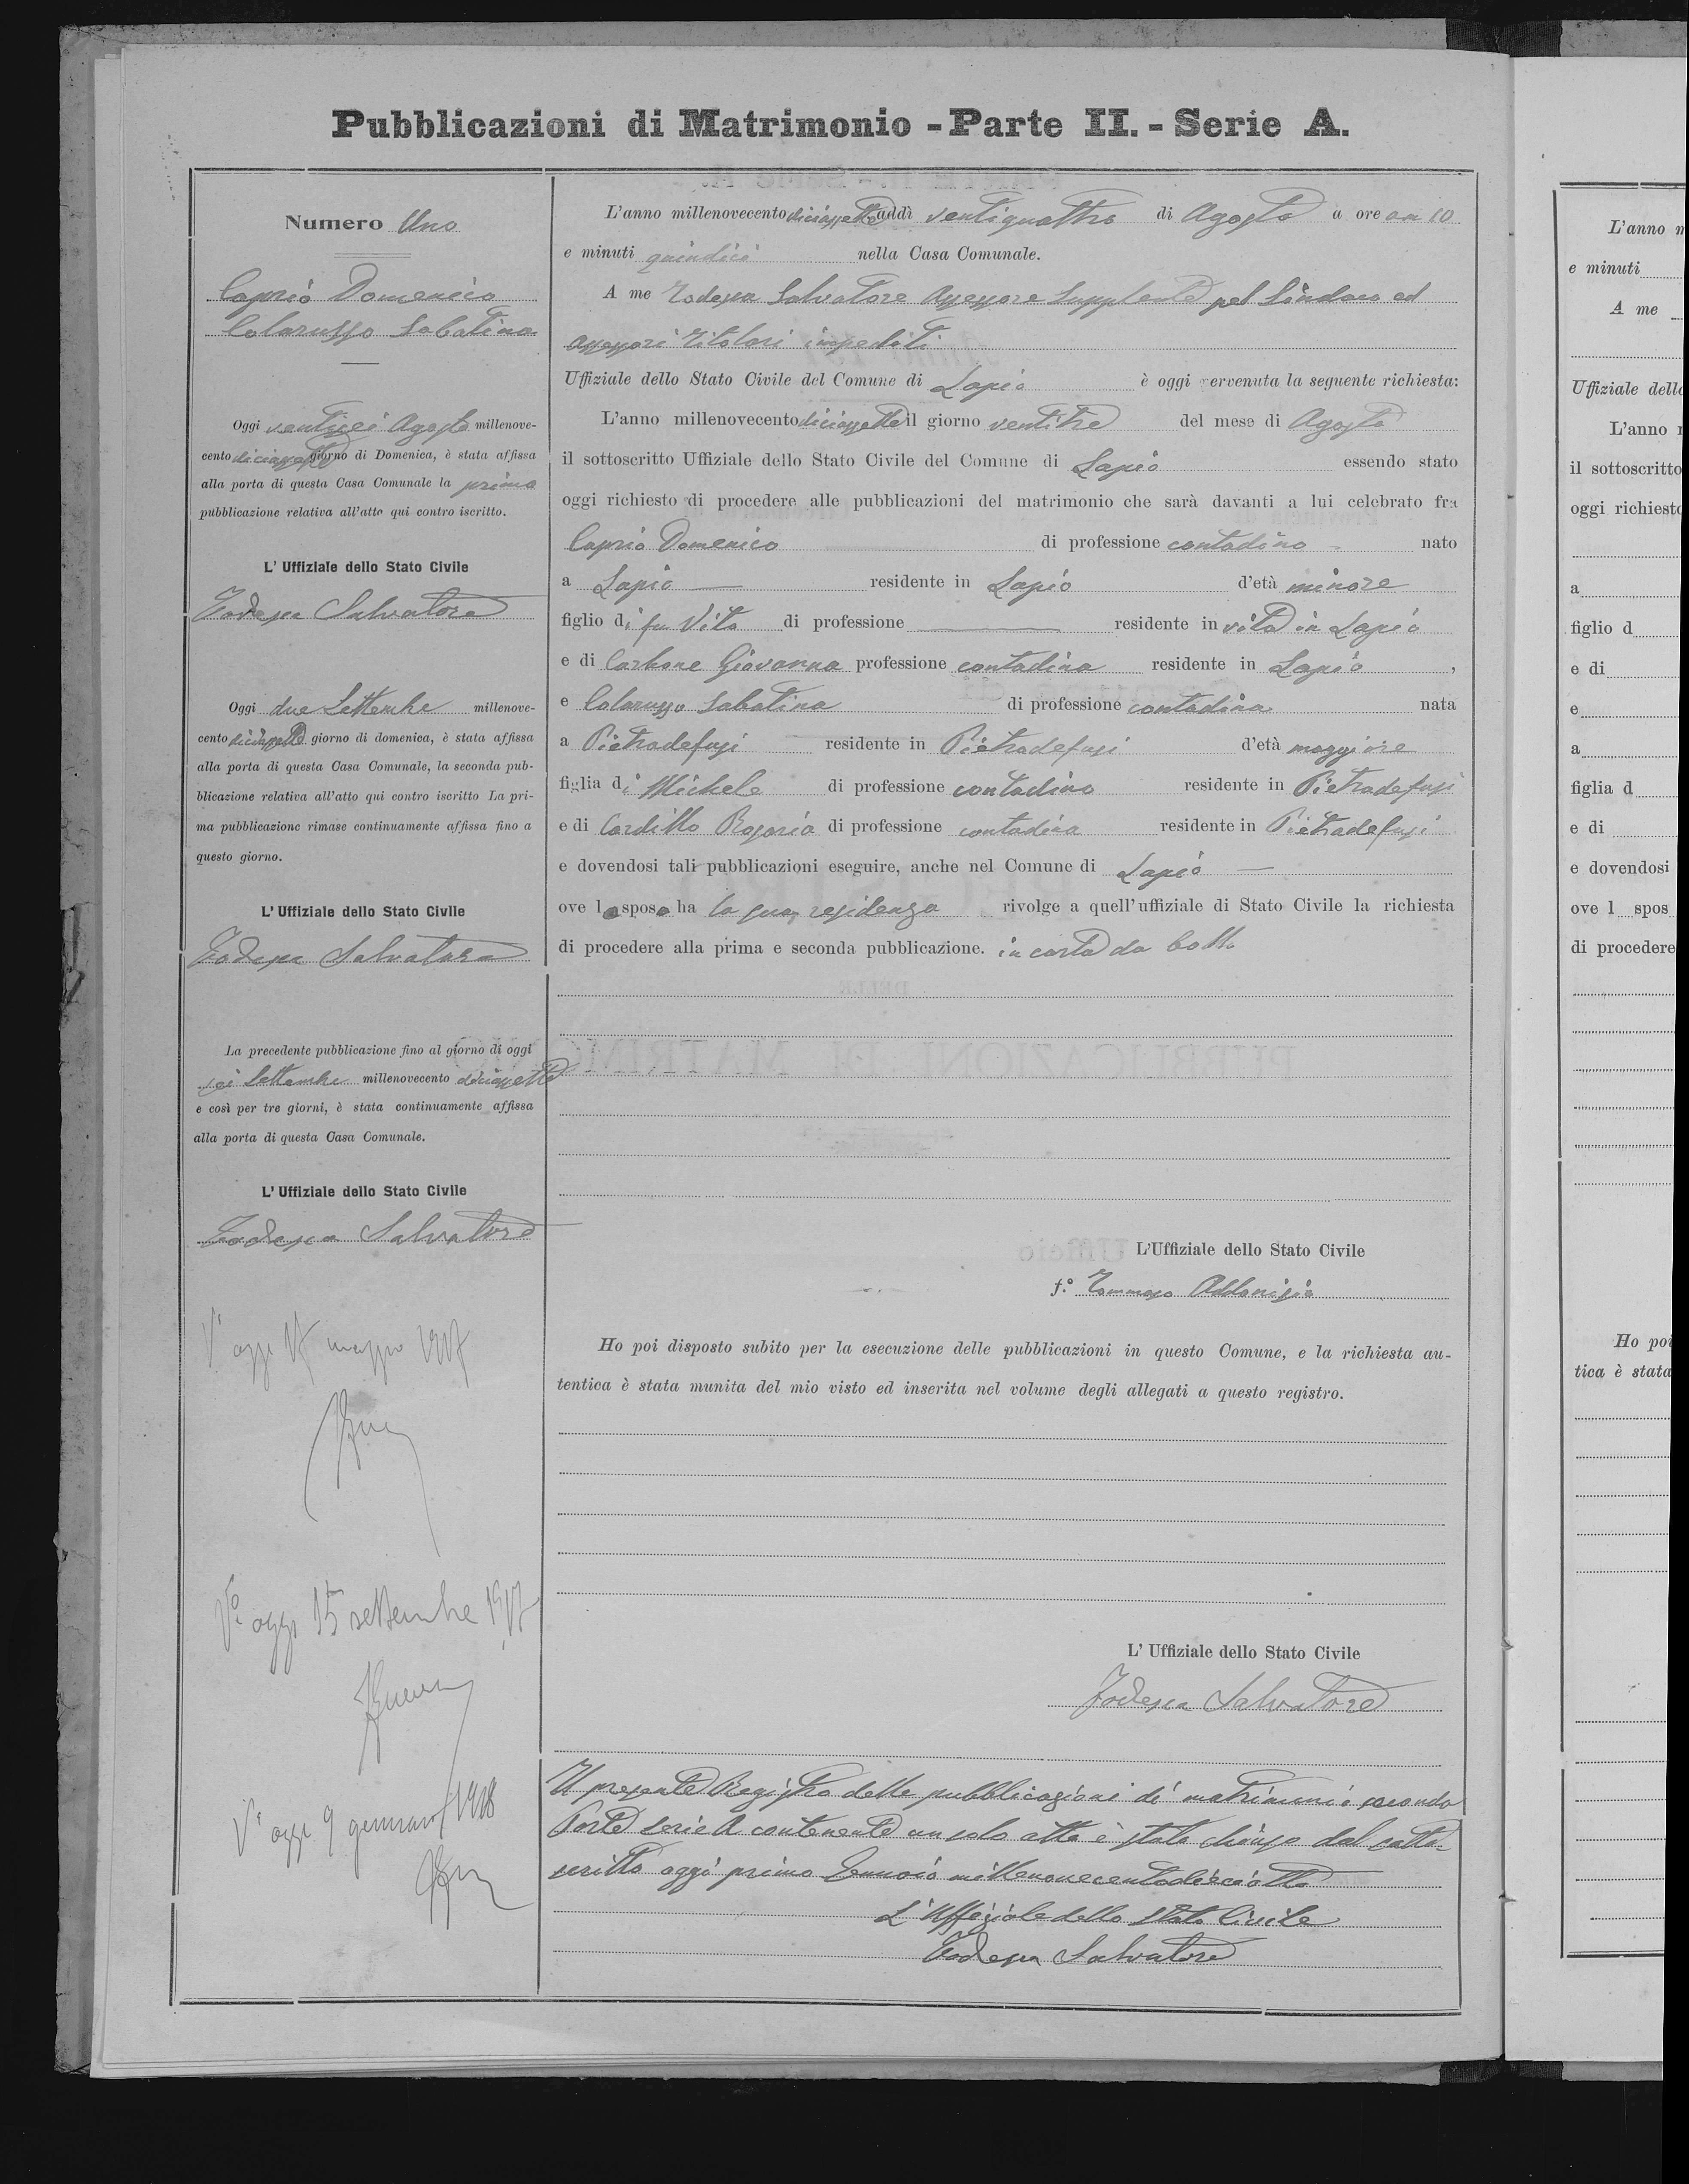 Pubblicazioni di Matrimonio - Parte II. - Serie A.
Numero Uno
Caprio Domenico
Colarusso Sabatina
Oggi ventisei Agosto millenove-
cento diciassette giorno di Domenica, è stata affissa
alla porta di questa Casa Comunale la prima
pubblicazione relativa all'atto qui contro iscritto.
L' Uffiziale dello Stato Civile
Todesca Salvatore
Oggi due Settembre millenove-
cento diciassette giorno di domenica, è stata affissa
alla porta di questa Casa Comunale, la seconda pub-
blicazione relativa all'atto qui contro iscritto La pri-
ma pubblicazione rimase continuamente affissa fino a
questo giorno.
L' Uffiziale dello Stato Civile
Todesca Salvatore
La precedente pubblicazione fino al giorno di oggi
sei Settembre millenovecento diciassette
e così per tre giorni, è stata continuamente affissa
alla porta di questa Casa Comunale.
L' Uffiziale dello Stato Civile
Todesca Salvatore
V° oggi 17 maggio 1917
V° oggi 15 settembre 1917
V° oggi 9 gennaio 1918
L'anno millenovecento diciassette addì ventiquattro di Agosto a ore am 10
e minuti quindici nella Casa Comunale.
A me Todesca Salvatore Assessore Supplente pel Sindaco ed
assessori titolari impediti
Uffiziale dello Stato Civile del Comune di Lapio è oggi pervenuta la seguente richiesta:
L'anno millenovecento diciassette il giorno ventitre del mese di Agosto
il sottoscritto Uffiziale dello Stato Civile del Comune di Lapio essendo stato
oggi richiesto di procedere alle pubblicazioni del matrimonio che sarà davanti a lui celebrato fra
Caprio Domenico di professione contadino nato
a Lapio residente in Lapio d'età minore
figlio di fu Vito di professione residente in vita in Lapio
e di Carbone Giovanna professione contadina residente in Lapio,
e Colarusso Sabatina di professione contadina nata
a Pietradefusi residente in Pietradefusi d'età maggiore
figlia di Michele di professione contadino residente in Pietradefusi
e di Cardillo Rosaria di professione contadina residente in Pietradefusi
e dovendosi tali pubblicazioni eseguire, anche nel Comune di Lapio
ove lo sposo ha la sua residenza rivolge a quell'uffiziale di Stato Civile la richiesta
di procedere alla prima e seconda pubblicazione. in carta da bollo
L'Uffiziale dello Stato Civile
f.° Tommaso Addonisio
Ho poi disposto subito per la esecuzione delle pubblicazioni in questo Comune, e la richiesta au-
tentica è stata munita del mio visto ed inserita nel volume degli allegati a questo registro.
L' Uffiziale dello Stato Civile
Todesca Salvatore
Il presente Registro delle pubblicazioni di matrimonio seconda
Parte serie A contenente un solo atto è stato chiuso dal sotto-
scritto oggi primo Gennaio millenovecentodiciotto
L'Uffiziale dello Stato Civile
Todesca Salvatore
L'anno m
e minuti
A me
Uffiziale dello
L'anno
il sottoscritto
oggi richiesto
a
figlio d
e di
e
a
figlia d
e di
e dovendosi
ove l spos
di procedere
Ho poi
tica è stata